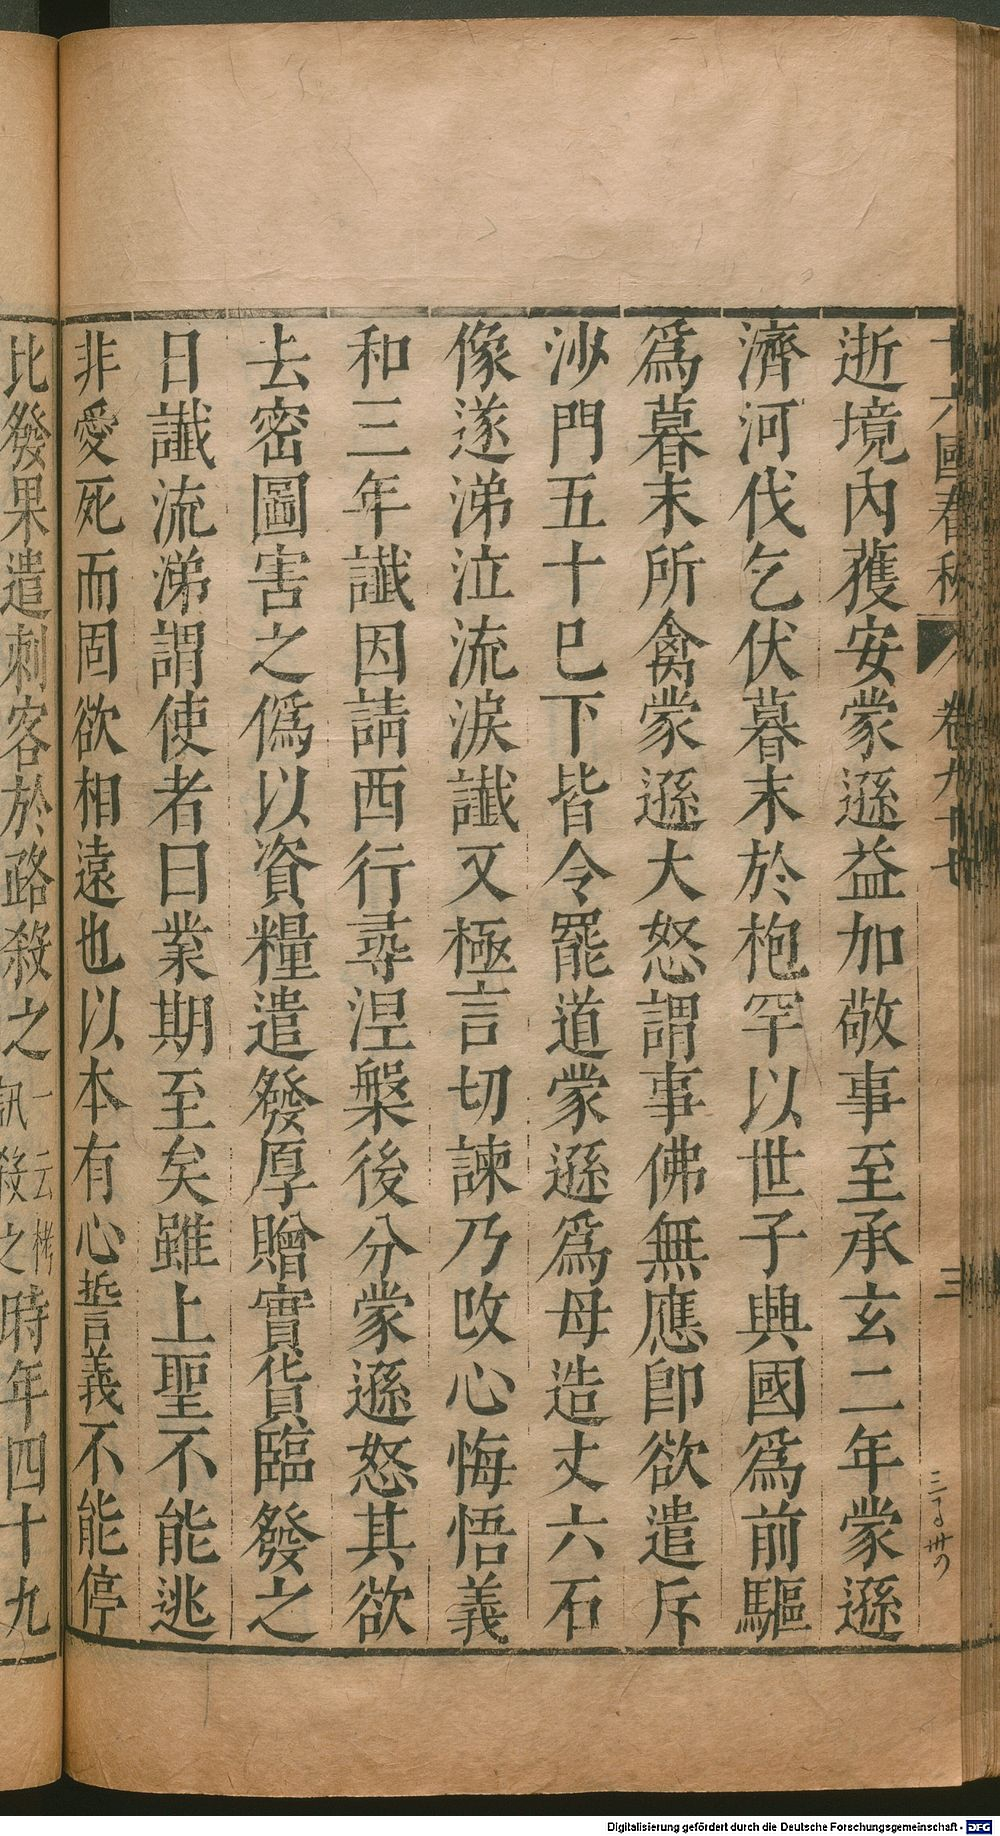 十六國春秋 卷九十七 三
逝境內獲安蒙遜益加敬事至承玄二年蒙遜
濟河伐乞伏暮末於枹罕以世子興國爲前驅
爲暮末所禽蒙遜大怒謂事佛無應卽欲遣斥
沙門五十巳下皆令罷道蒙遜爲母造丈六石
像遂涕泣流淚讖又極言切諫乃改心悔悟義
和三年讖因請西行尋涅槃後分蒙遜怒其欲
去密圖害之僞以資糧遣發厚贈寶貨臨發之
日讖流涕謂使者曰業期至矣雖上聖不能逃
非愛死而固欲相遠也以本有心誓義不能停
比發果遣刺客於路殺之一云拷訊殺之時年四十九
Digitalisierung gefördert durch die Deutsche Forschungsgemeinschaft - DFG